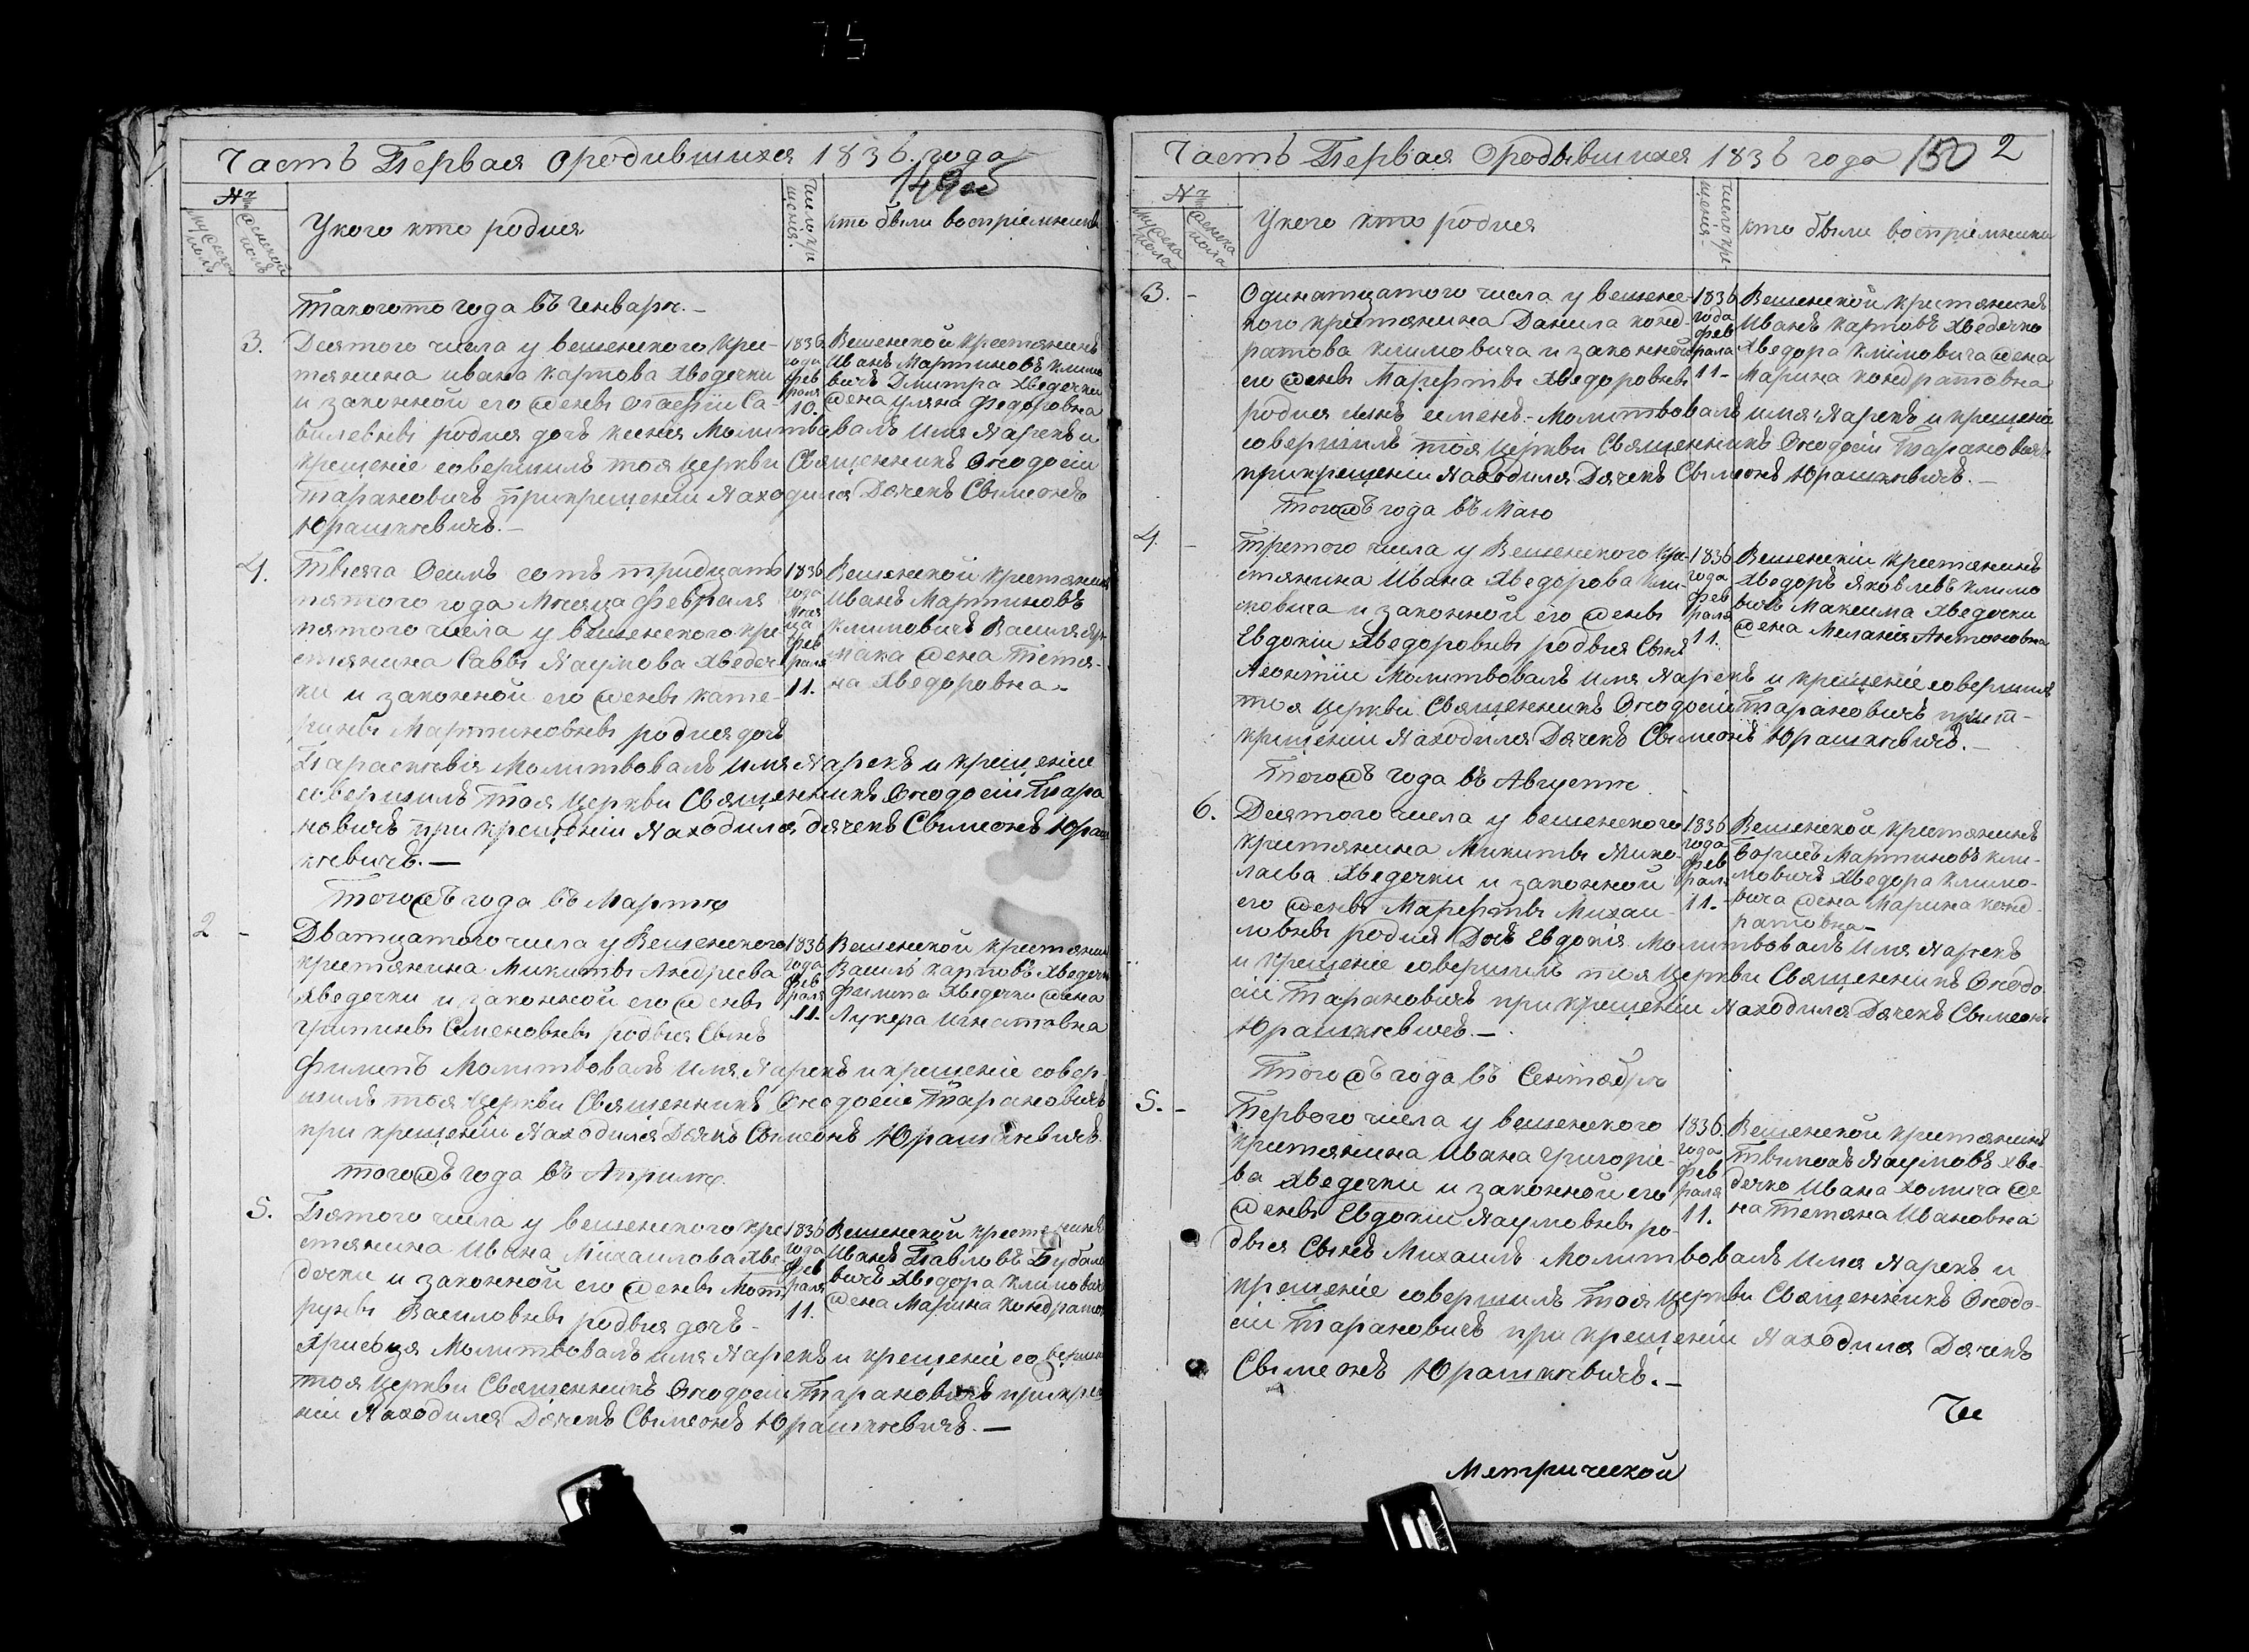 75
Часть Первая Ородившихся 1836. года
149 об
№
мужеской полъ
женской полъ
Укого кто родися
число кре
щенія.
кто были воспріемники
Такогото года въ Генваре. –
3. Десятого числа у вешенского кре-
стянина ивана карпова Хведечки
и законной его жены
вилевны родися дочь ксенія Молитвовалъ Имя Нарекъ и
крещеніе совершилъ тоя Церкви Священникъ Ѳеодосій
Тарановичъ при крещеніи находился Дячекъ Свимеонъ
Юрашкевичъ. –
1836
года
фев
раля
10.
Вешенской крестянинъ
Иванъ Мартиновъ климо
вичъ Дмитра Хведечки
жена уляна Федоровна
4. Тысяча Осимъ сотъ тридцать
пятого года Месяца февраля
пятого числа у вешенского кре-
стянина Саввы Наумова Хведеч
ки и законной его жены кате-
рины Мартиновны родися дочь
Параскевія Молитвовалъ Имя Нарекъ и крещеніе
совершилъ тоя Церкви Священникъ Ѳеодосій Тара
новичъ при крещеніи находился дячекъ Свимеонъ Юраш
кевичъ. –
1836
года
меся
ца
фев
раля
11.
Вешенской крестянинъ
Иванъ Мартиновъ
климовичъ Василя
мака жена Тетя-
на Хведоровна –
Тогожъ года въ Марте
2 - Дватцатого числа у Вешенского
крестянина Микиты Андреева
Хведечки и законной его жены
грипины Семеновны родыся Сынъ
Филипъ Молитвовалъ Имя Нарекъ и крещеніе совер
шилъ тоя Церкви Священникъ Ѳеодосій Тарановичъ
при крещеніи находился Дячкъ Свимеонъ Юрашкевичъ
1836
года
фев
раля
11.
Вешенской крестянин
Василь карповъ Хведечк
филипа Хведечки жена
Лукера Игнатовна
тогожъ года въ Априле
5. Пятого числа у вешенского кре
стянина Ивана Михаилова Хве
дечки и законной его жены Мот
руны Василовны родыся дочь –
Христя Молитвовалъ имя Нарекъ и крещеніе соверши
тоя Церкви Священникъ Ѳеодосій Тарановичъ при кре
ніи находился Дячекъ Свимеонъ Юрашкевичъ. –
1836
года
фев
раля
11.
Вешенской крестянинъ
Иванъ Павловъ
вичъ Хведора климович
жена Марина кондратов
Часть Первая Ородывшихся 1836 года 150 2
№
мужеска пола
женска пола
Укого кто родися
число кре-
щенія.
кто были воспріемники
3. - Одинатцатого числа у вешенс-
кого крестянина Данила конд-
ратова климовича и законной
его жены Марфты Хведоровны
родися сынъ семенъ – Молитвовалъ имя Нарекъ и крещеніе
совершилъ тоя Церкви Священникъ Ѳеодосій Тарановичъ
при крещеніи находился Дячекъ Свимеонъ Юрашкевичъ. –
1836
года
фев
раля
11 –
Вешенской крестянинъ
Иванъ карповъ Хведечко
Хведора климовича жена
Марина кондратовна
Тогожъ года въ Маю
4. - Третого числа у Вешенского кре-
стянина Ивана Хведорова кли-
мовича и законной его жены
Евдокіи Хведоровны родыся Сынъ
Леонтіи Молитвовалъ Имя Нарекъ и крещеніе совершилъ
тоя Церкви Священникъ Ѳеодосій Тарановичъ при
крещеніи находился Дячекъ Свимеонъ Юрашкевичъ. –
1836
года
фев
раля
11.
Вешенскіи крестянинъ
Хведоръ Яковлевъ климо
вичъ Максима Хведечки
жена Меланія Антоновна
Тогожъ года въ Августе
6. Десятого числа у вешенского
крестянина Микиты Нико-
лаева Хведечки и законной
его жены Марфты Михаи-
ловны родися Дочь Евдокія Молитвовалъ Имя Нарекъ
и крещеніе совершилъ тоя Церкви Священникъ Ѳеодо
сій Тарановичъ при крещеніи находился Дячекъ Свимеонъ
Юрашкевичъ. –
1836
года
фев
раля
11. –
Вешенской крестянинъ
Борисъ Мартиновъ кли-
мовичъ Хведора климо-
вича жена Марина конд-
ратовна –
Тогожъ года въ Сентябре
5. - Первого числа у вешенского
крестянина Ивана Григорие-
ва Хведечки и законной его
жены Евдокіи Наумовны ро-
дыся Сынъ Михаилъ Молитвовалъ Имя Нарекъ и
крещеніе совершилъ тоя Церкви Священникъ Ѳеодо-
сій Тарановичъ при крещеніи находился Дячекъ
Свимеонъ Юрашкевичъ. –
1836.
года
фев
раля
11.
Вешенской крестянинъ
Тимохъ Наумовъ хве-
дечко Ивана Хомича же
на Тетяна Ивановна
Че
Метрической